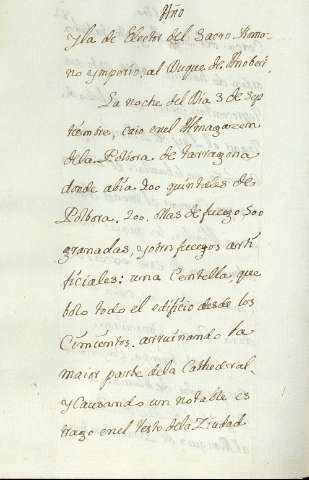 Año
Yla de Elector del Sacro Roma-
no ymperio, al Duque de
La noche del Dia 3 de Sep
tiembre, caio en el Almagazen
de la Polbora de Tarragona
donde abia 200 quintales de
Polbora, 200. ollas de fuego, 500
granadas, y otros fuegos arti
ficiales: una Centella, que
bolo todo el edificio desde los
Cimientos, arruinando la
maior parte de la Cathedral,
Y Causando un notable es
trago en el resto de la Ziudad